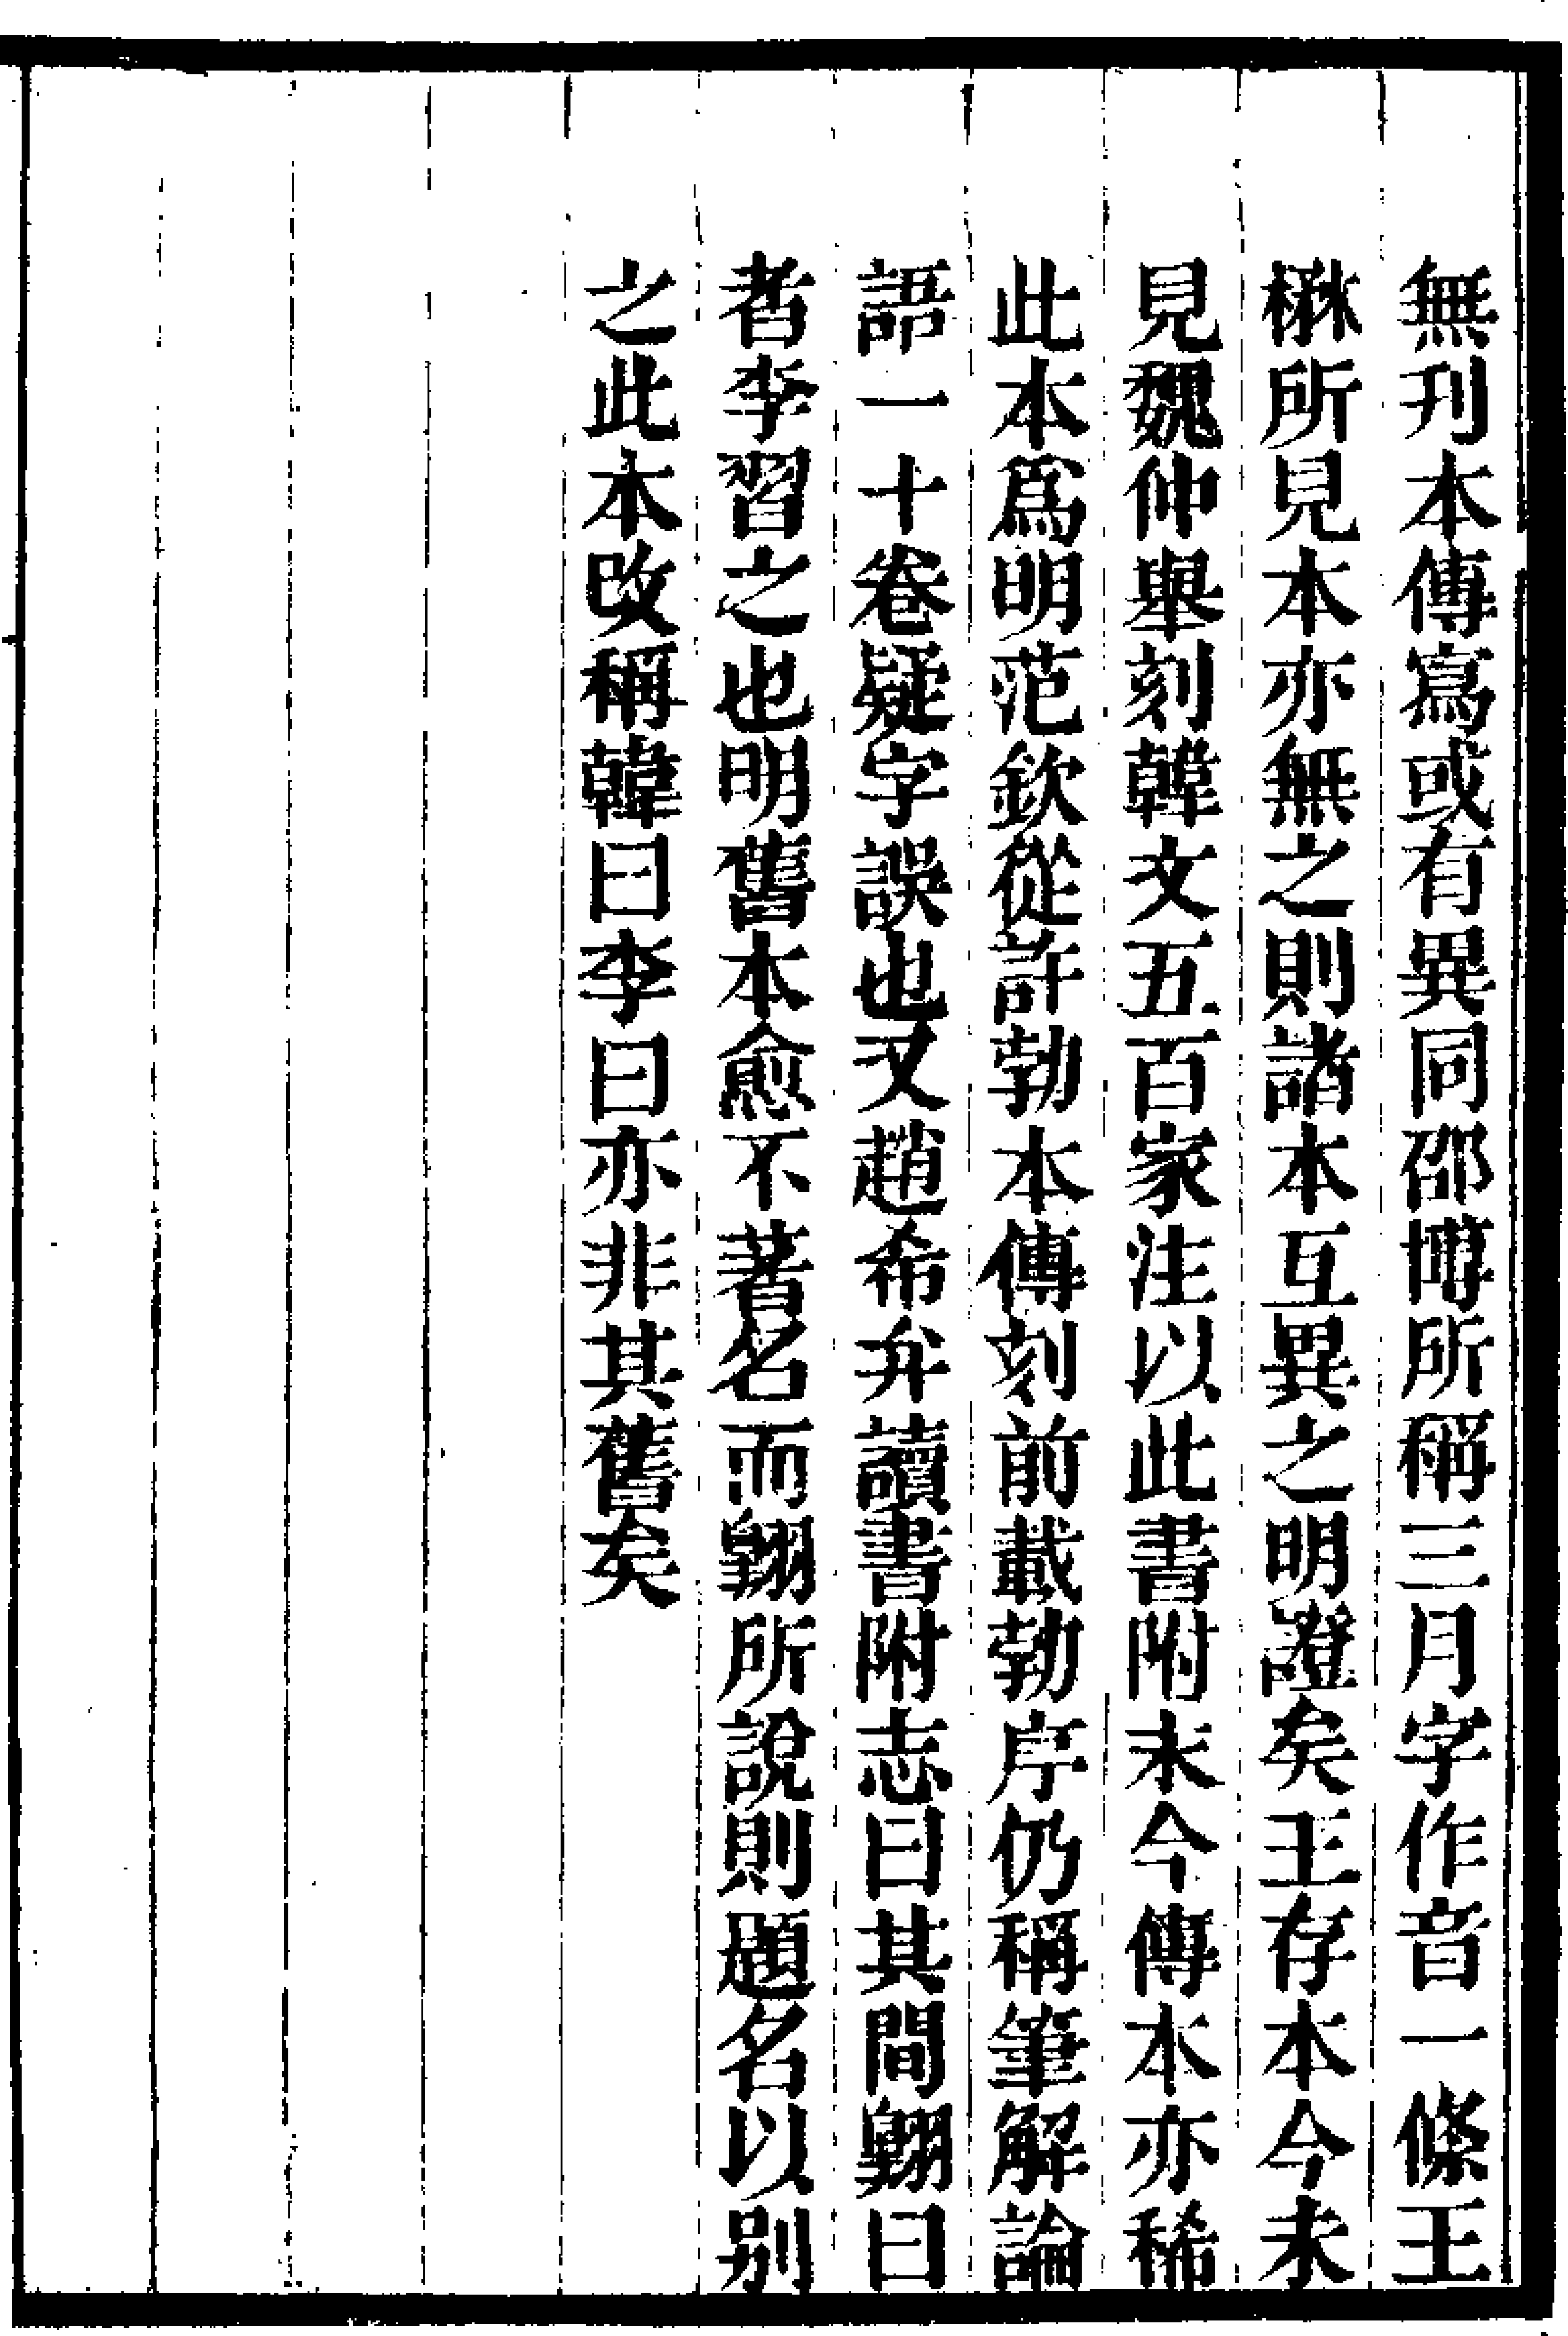 無刋本傳寫或有異同邵博所稱三月字作音一條王
楙所見本亦無之則諸本互異之明證矣王存本今未
見魏仲舉刻韓文五百家注以此書附末今傳本亦稀
此本爲明范欽從許勃本傳刻前載勃序仍稱筆解論
語一十卷疑字誤也又趙希弁讀書附志曰其間翺曰
者李習之也明舊本愈不著名而翺所說則題名以别
之此本改稱韓曰李曰亦非其舊矣